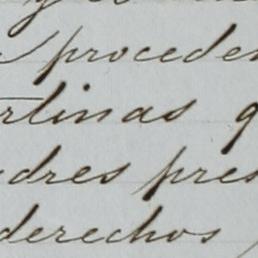 y
proceden
rlinas q
dres pres
derechos